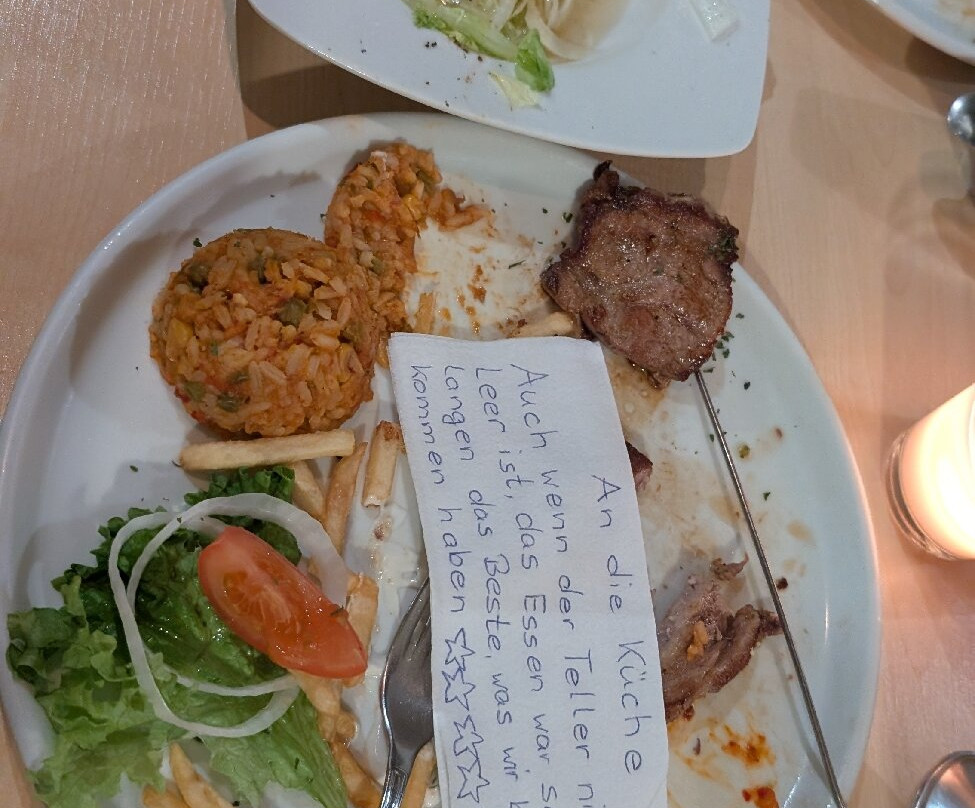 An die Küche
Auch wenn der Teller ni
Leer ist, das Essen war s
Langen das Beste, was wir
kommen haben ☆☆☆☆